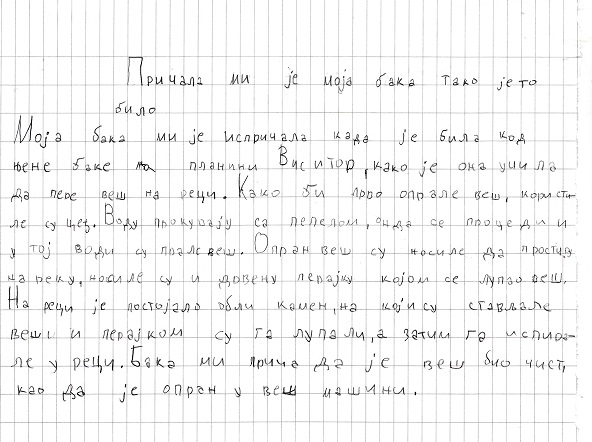 Причала ми је моја бака тако је то
било
Моја бака ми је испричала када је била код
њене баке на планини Виситор, како је она учила
да пере веш на реци. Како би прво опрале веш, користи-
ле су цеђ. Воду прокувају са пепелом, онда се процеди и
у тој води су прале веш. Опран веш су носиле да простиру
на реку, носиле су и дрвену перајку којом се лупао веш.
На реци је постојало обли камен, на који су стављале
веш и перајком су га лупали, а затим га испира-
ле у реци. Бака ми прича да је веш био чист,
као да је опран у веш машини.